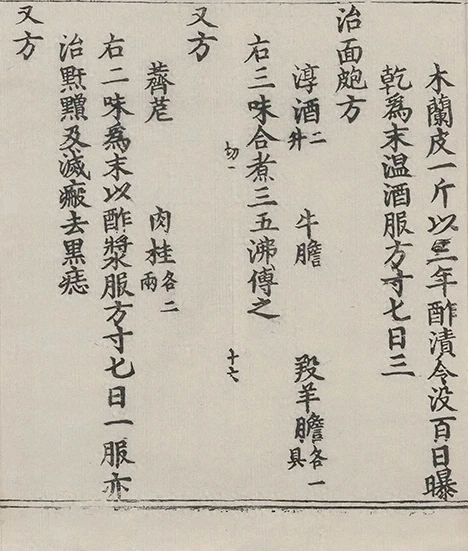 木蘭皮一斤以三年酢漬令没百日曝
乾爲末温酒服方寸七日三
治面皰方
淳酒二升 牛膽 羖羊膽各一具
右三味合煮三五沸傅之
切一 十七
又方
薺苨 肉桂各二兩
右二味爲末以酢漿服方寸七日一服亦
治䵟黯及滅瘢去黒痣
又方